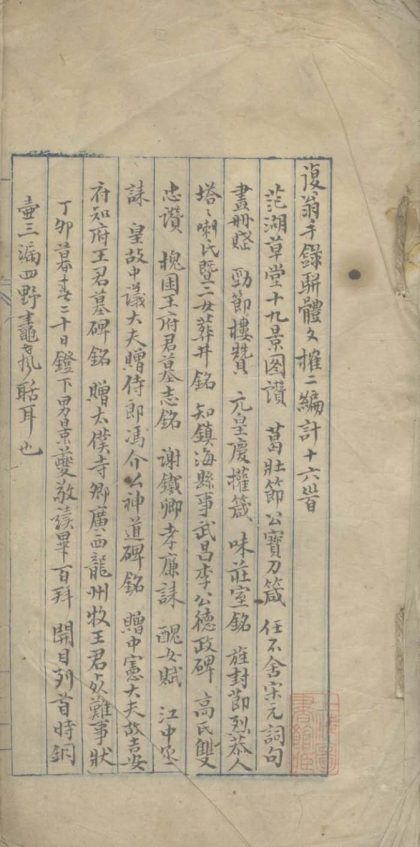 復翁手錄駢體文摧二編計十六首
茫湖草堂十九景图讚 葛壯節公寶刀箴 任不舍宋元詞句
畫冊贊 勁節樓贊 元皇慶權箴 味莊室銘 旌封節烈恭人
塔塔喇氏暨二女葬井銘 知鎮海縣事武昌李公德政碑 高氏雙
忠讚 槐園王府君墓志銘 謝鐵卿孝廉誄 醜女賦 江中丞
誄 皇故中議大夫贈侍郎馮介公神道碑銘 贈中憲大夫故吉安
府知府王君墓碑銘 贈太僕寺卿廣西龍州牧王君贞難事狀
丁卯暮春二十日鐙下男景夔敬读畢百拜 開目列首時銅
壷三漏四野聒耳也